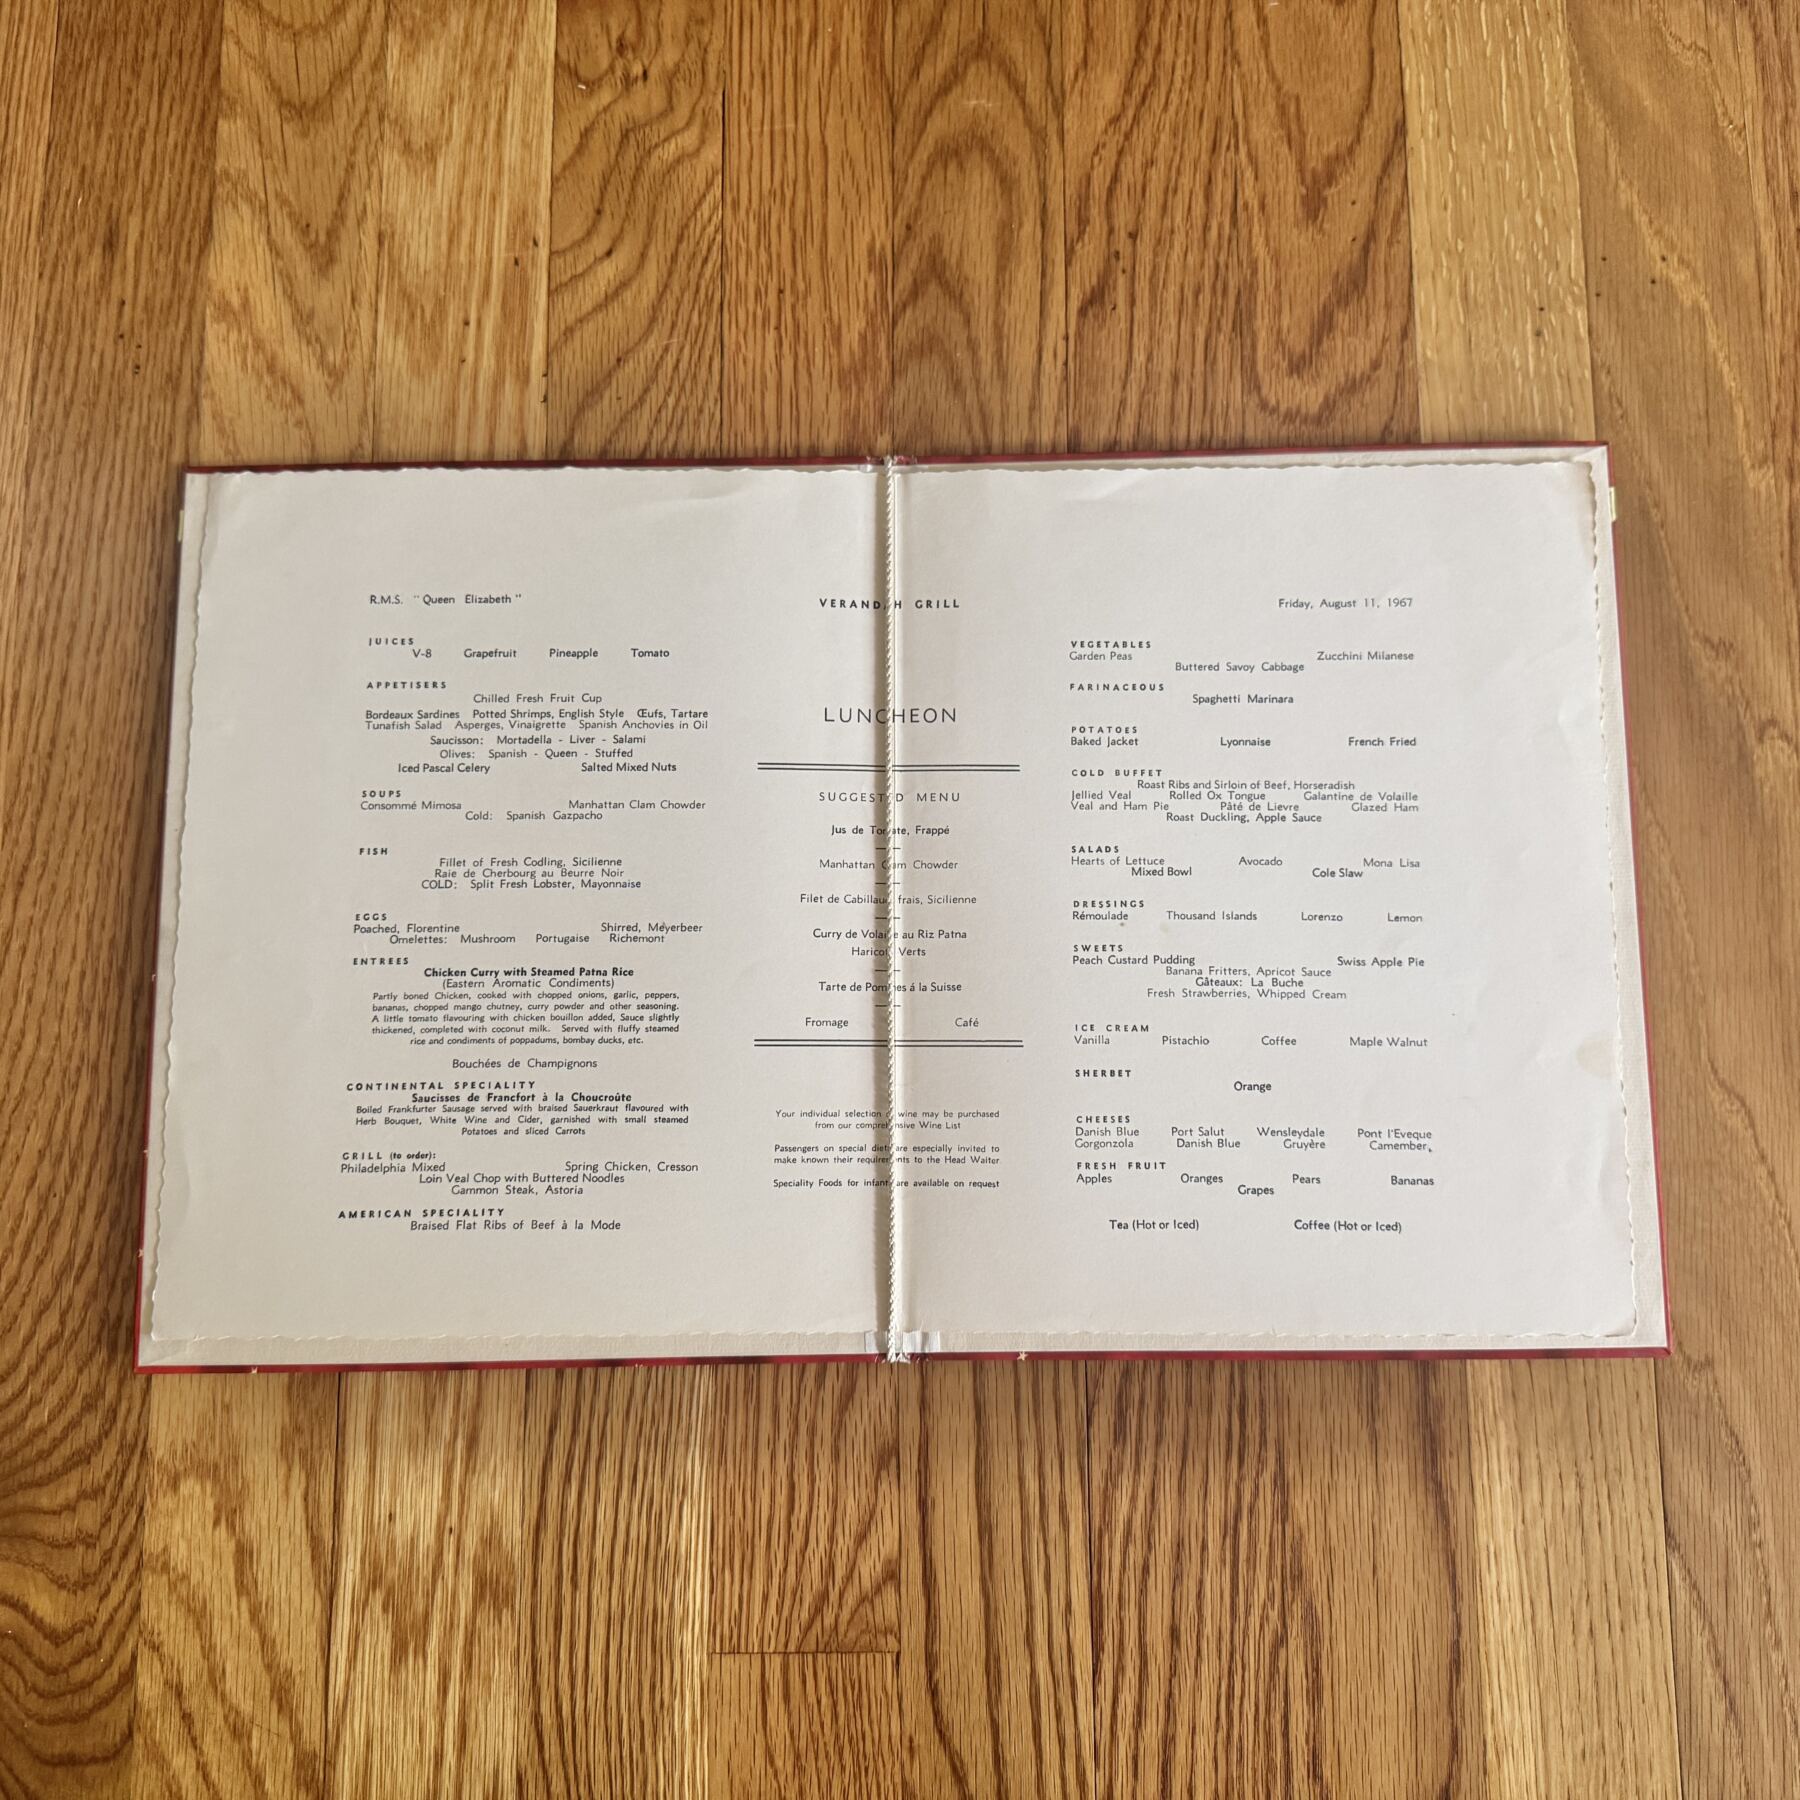 R.M.S. "Queen Elizabeth"
VERANDAH GRILL
Friday, August 11, 1967
JUICES
V-8 Grapefruit Pineapple Tomato
APPETISERS
Chilled Fresh Fruit Cup
Bordeaux Sardines Potted Shrimps, English Style Œufs, Tartare
Tunafish Salad Asperges, Vinaigrette Spanish Anchovies in Oil
Saucisson: Mortadella - Liver - Salami
Olives: Spanish - Queen - Stuffed
Iced Pascal Celery Salted Mixed Nuts
SOUPS
Consommé Mimosa Manhattan Clam Chowder
Cold: Spanish Gazpacho
FISH
Fillet of Fresh Codling, Sicilienne
Raie de Cherbourg au Beurre Noir
COLD: Split Fresh Lobster, Mayonnaise
EGGS
Poached, Florentine Shirred, Meyerbeer
Omelettes: Mushroom Portugaise Richemont
ENTREES
Chicken Curry with Steamed Patna Rice
(Eastern Aromatic Condiments)
Partly boned Chicken, cooked with chopped onions, garlic, peppers,
bananas, chopped mango chutney, curry powder and other seasoning.
A little tomato flavouring with chicken bouillon added, Sauce slightly
thickened, completed with coconut milk. Served with fluffy steamed
rice and condiments of poppadums, bombay ducks, etc.
Bouchées de Champignons
CONTINENTAL SPECIALITY
Saucisses de Francfort à la Choucroûte
Boiled Frankfurter Sausage served with braised Sauerkraut flavoured with
Herb Bouquet, White Wine and Cider, garnished with small steamed
Potatoes and sliced Carrots
GRILL (to order):
Philadelphia Mixed Spring Chicken, Cresson
Loin Veal Chop with Buttered Noodles
Gammon Steak, Astoria
AMERICAN SPECIALITY
Braised Flat Ribs of Beef à la Mode
LUNCHEON
SUGGESTED MENU
Jus de Tomate, Frappé
Manhattan Clam Chowder
Filet de Cabillaud frais, Sicilienne
Curry de Volaille au Riz Patna
Haricots Verts
Tarte de Pommes á la Suisse
Fromage Café
Your individual selection of wine may be purchased
from our comprehensive Wine List
Passengers on special diets are especially invited to
make known their requirements to the Head Waiter
Speciality Foods for infants are available on request
VEGETABLES
Garden Peas Zucchini Milanese
Buttered Savoy Cabbage
FARINACEOUS
Spaghetti Marinara
POTATOES
Baked Jacket Lyonnaise French Fried
COLD BUFFET
Roast Ribs and Sirloin of Beef, Horseradish
Jellied Veal Rolled Ox Tongue Galantine de Volaille
Veal and Ham Pie Pâté de Lievre Glazed Ham
Roast Duckling, Apple Sauce
SALADS
Hearts of Lettuce Avocado Mona Lisa
Mixed Bowl Cole Slaw
DRESSINGS
Rémoulade Thousand Islands Lorenzo Lemon
SWEETS
Peach Custard Pudding Swiss Apple Pie
Banana Fritters, Apricot Sauce
Gâteaux: La Buche
Fresh Strawberries, Whipped Cream
ICE CREAM
Vanilla Pistachio Coffee Maple Walnut
SHERBET
Orange
CHEESES
Danish Blue Port Salut Wensleydale Pont l'Eveque
Gorgonzola Danish Blue Gruyère Camembert
FRESH FRUIT
Apples Oranges Pears Bananas
Grapes
Tea (Hot or Iced) Coffee (Hot or Iced)